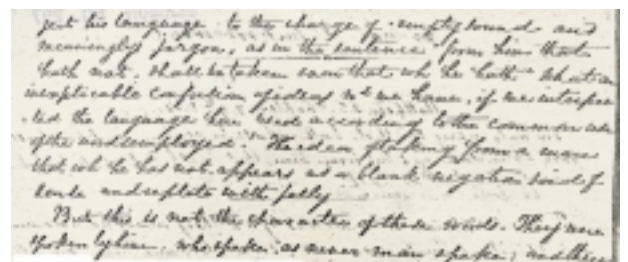 ject his language to the charge of empty sound and
meaningless jargon, as in the sentence "from him that
hath not, shall be taken even that wh he hath" What an
inexplicable confusion of ideas wd we have, if we interpre
ted the language here used according to the common use
of the words employed. The idea of taking from a man
that wh he has not appears as a blank negation void of
sense and replete with folly
But this is not the character of these words. They were
spoken by him, who spake, as never man spake; and there